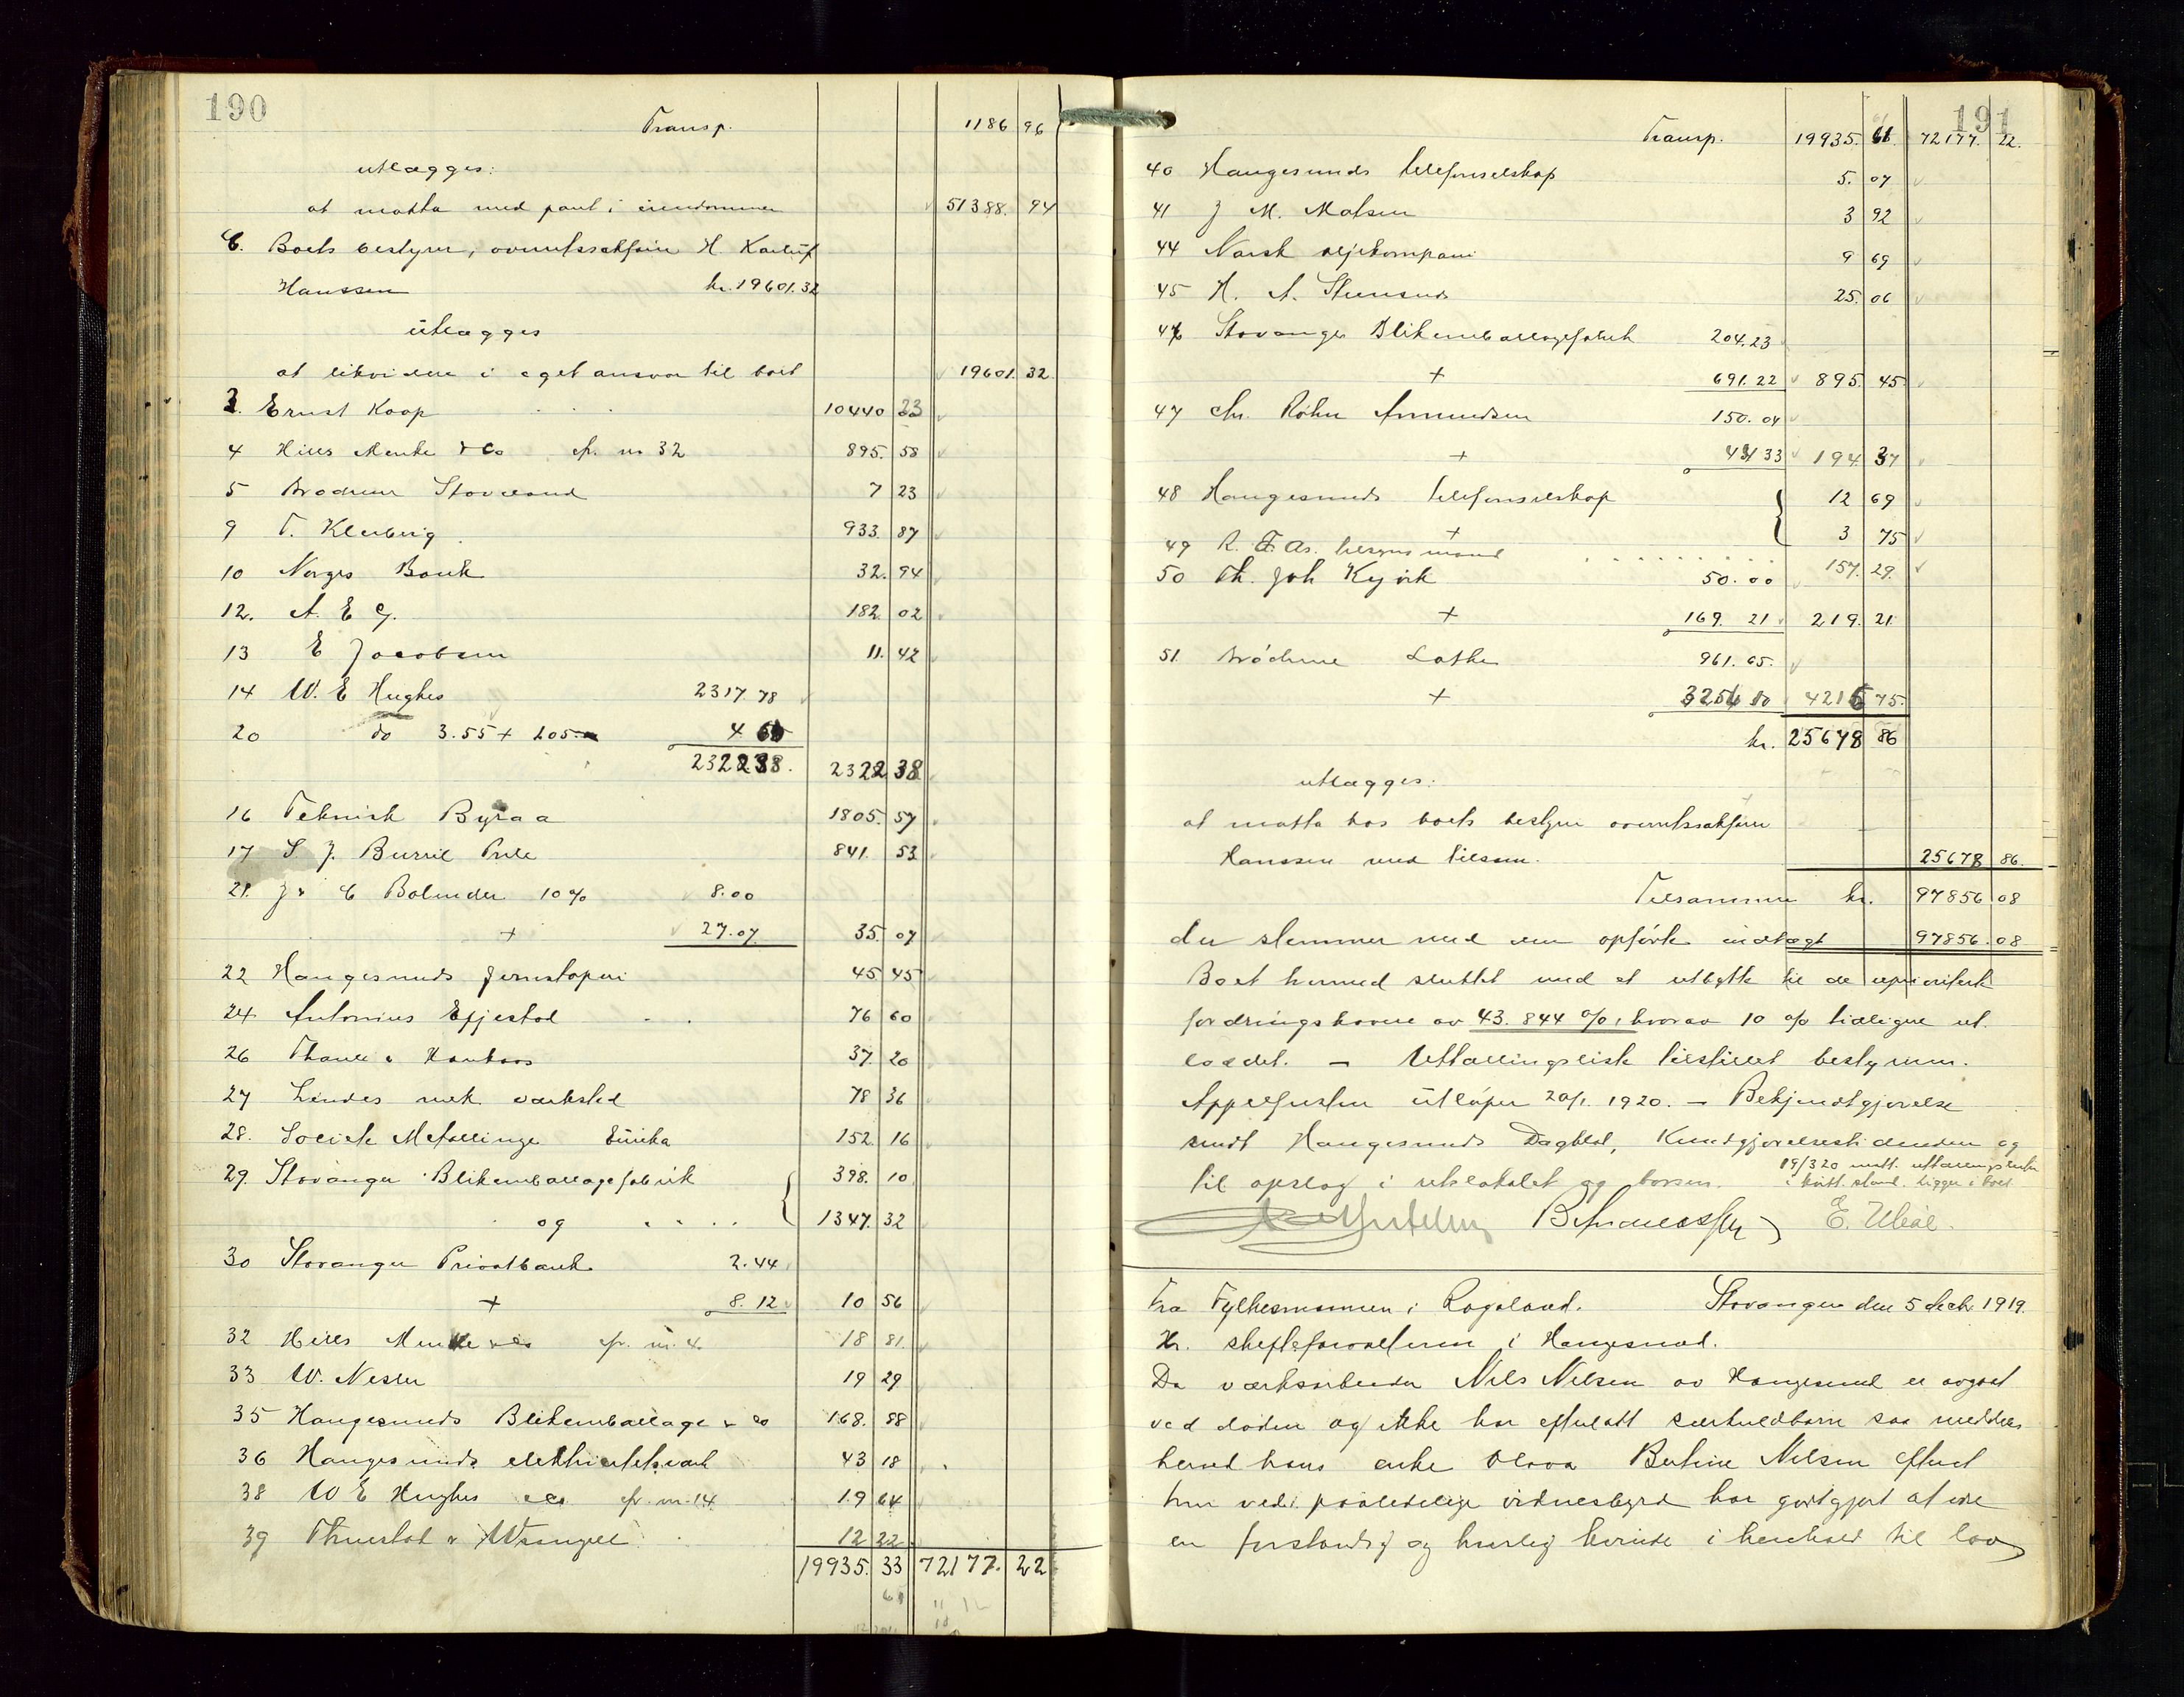 190
Transp. 1186 96
utlægges:
at motta med pant i eiendommen 51388. 94
C. Boets bestyrer, overretssakfører H. Kaarup
Hanssen kr. 19601.32
utlægges
at likvidere i eget ansvar til boet 19601. 32
3. Ernst Koop 10440 23
4 Hilles Menke & Co cfr. nr 32 895. 58
5 Brødrene Stovland 7 23
9 T. Klerberg 933. 87
10 Norges Bank 32. 94
12. A. E G. 182. 02
13 E Jacobsen 11. 42
14 W. E Hughes 2317.78
20 do 3.55 + 105 4 60
2322 38. 2322 38
16 Teknisk Byraa 1805. 57
17 S. J. Burrel Prile 841. 53
21. J & C Bolinder 10% 8.00
+ 27.07 35. 07
22 Haugesunds Jernstøperi 45 45
24 Antonius Egjestad 76 60
26 Thane & Hanhaas 37. 20
27 Lindes mek værksted 78 36
28. Societe Metallinge Eureka 152. 16
29. Stavanger Blikemballagefabrik 398. 10
og 1347. 32
30 Stavanger Privatbank 2.44
+ 8.12 10 56
32 Hilles Menke & Co cfr. nr. 4 18 81
33 W. Nesler 19 29
35 Haugesunds Blikemballage & Co 168. 88
36 Haugesunds elektricitetsværk 43 18
38 W E Hughes & Co cfr. nr. 14 19 64
39 Thrustad & Wrangell 12 22
19935. 33 72177. 22
191
Transp. 19935. 61 72177. 22.
40 Haugesunds telefonselskap 5. 07
41 J M. Matsen 3 92
44 Norsk oljekompani 9 69
45 H. A. Steensnes 25. 06
46 Stavanger Blikemballagefabrik 204.23
+ 691.22 895. 45
47 Chr. Røhr Amundsen 150.04
+ 44 33 194 37
48 Haugesunds telefonselskap 12 69
+ 3 75
49 R. F. As. tilsynsmand 157. 29.
50 Th. Joh Kyvik 50.00
+ 169. 21 219. 21
51. Brødrene Lothe 961.65.
+ 3254 10 4216 75.
kr. 25678 86
utlægges:
at motta hos boets bestyrer overretssakfører
Hanssen med tilsam. 25678 86.
Tilsammen kr. 97856 08
der stemmer med den opførte indtægt 97856.08
Boet hermed sluttet med et utbytte til de uprioriterte
fordringshavere av 43.844 %, hvorav 10 % tidligere ut-
loddet. — Uttællingsliste tilstillet bestyreren.
Appelfristen utløper 20/1. 1920. — Bekjendtgjørelse
sendt Haugesunds Dagblad, Kundgjørelsestidenden og
til opslag i retslokalet og børsen. 19/3 20 mott. uttællingsliste
i kvitt. stand. Ligger i boet
E. Ubøe.
Fra Fylkesmannen i Rogaland. Stavanger den 5 decbr. 1919.
Hr. skifteforvalteren i Haugesund.
Da værksarbeider Nils Nilsen av Haugesund er avgaat
ved døden og ikke har efterlatt særkuldbarn saa meddeles
herved hans enke Olava Bertine Nilsen efterat
hun ved paalidelige vidnesbyrd har godtgjort at være
en forstandig og huslig kvinde i henhold til lov